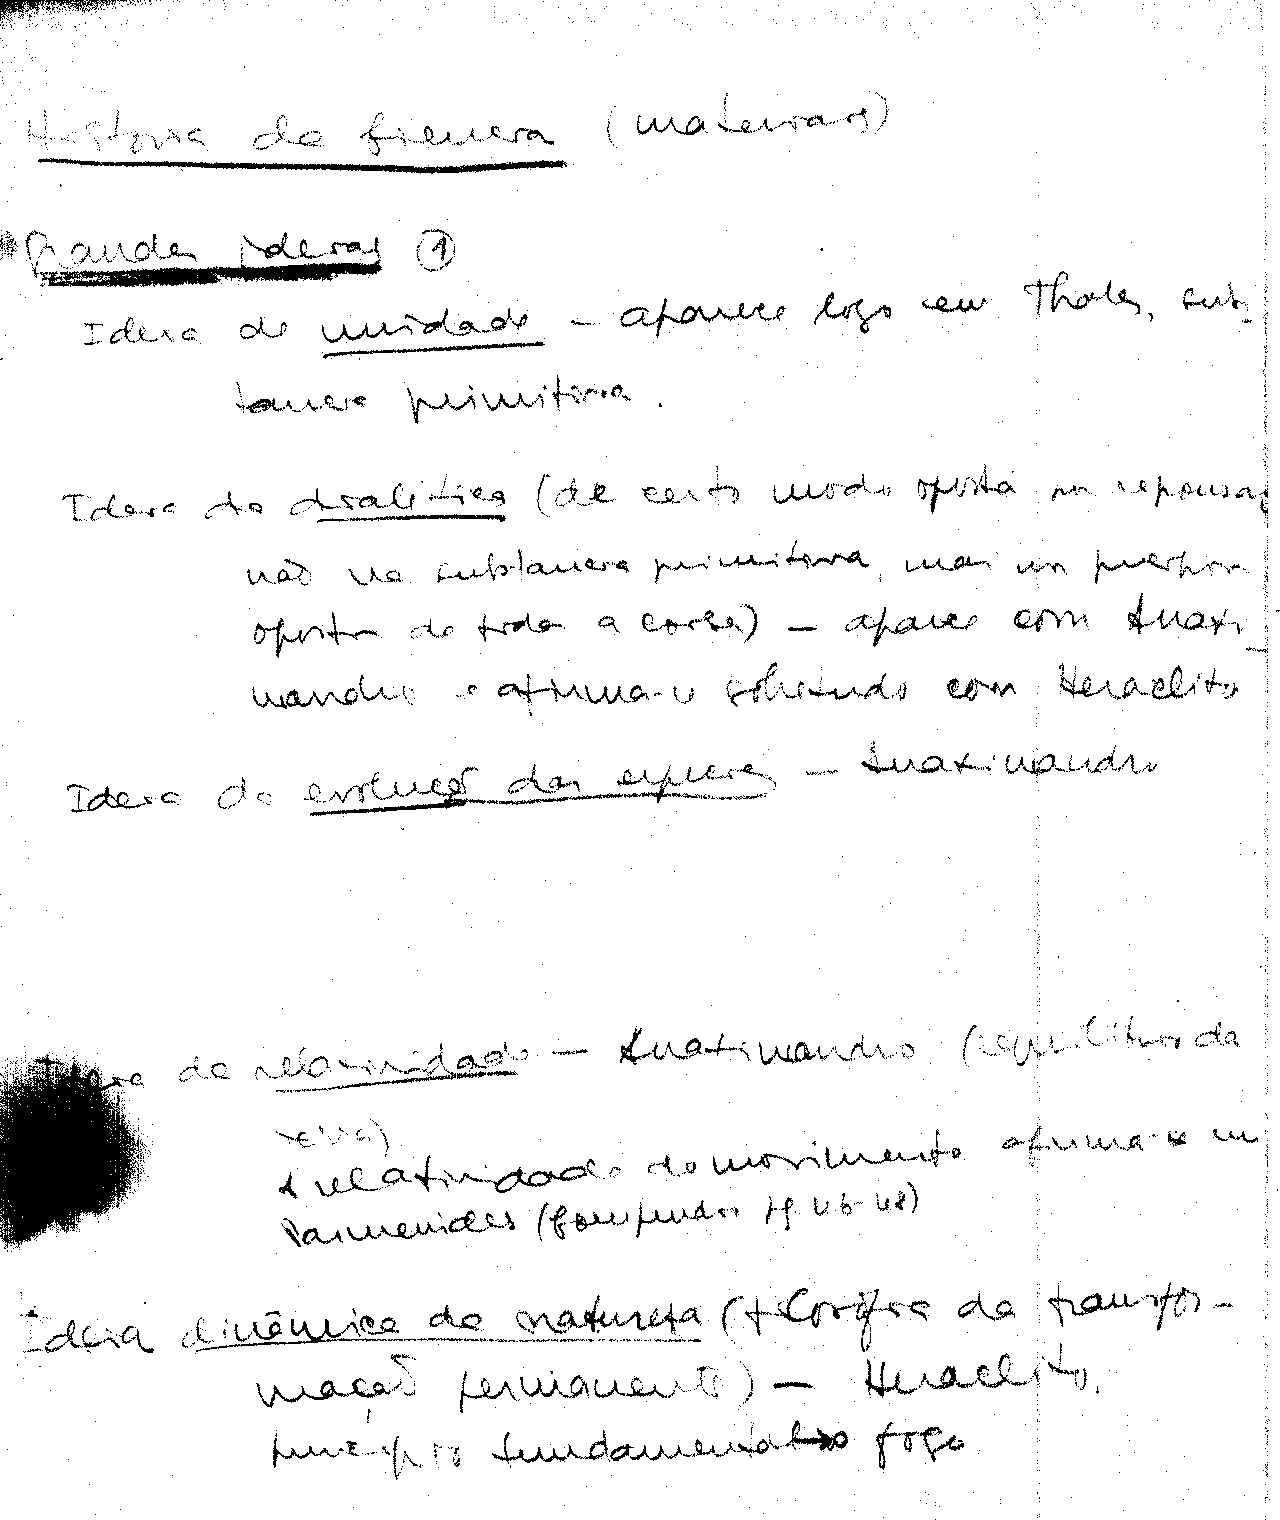 História da Ciência (materiais)
Grandes ideias ①
Ideia de unidade – aparece logo em Thales, subs-
tancia primitiva.
Ideia da dialitica (de certo modo oposta
não na substancia primitiva, mas
oposta de toda a coisa) – aparece com Anaxi-
mandro e afirma-se sobretudo com Heraclito
Ideia da evolução das especies – Anaximandro
Ideia da relatividade – Anaximandro (equilibrio da
A relatividade do movimento afirma-se em
Parmenides (Gompendos pg 46-48)
Ideia dinâmica da natureza (filosofia da transfor-
mação permanente) – Heraclito,
principio fundamental → o fogo